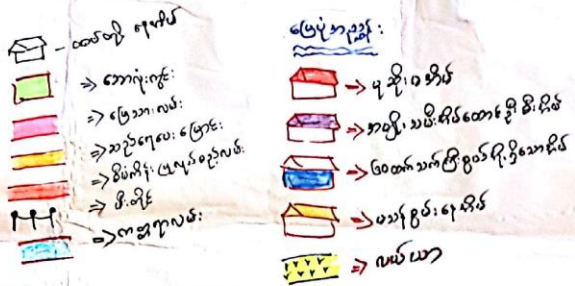 တပ်တို့ နေအိမ်
ဘောလုံးကွင်း
မြေသားလမ်း
သဉ်ရေပေး မြောင်း
စီမံကိန်း ပြုလုပ်မည့်လမ်း
မီးတိုင်
ကတ္တရာလမ်း
မြေပုံအညွှန်း
မုဆိုးမအိမ်
အမျိုးသမီးအိမ်ထောင်ဦးစီးအိမ်
၆၀ထက်သက်ကြီးရွယ်အိုရှိသောအိမ်
မသန်စွမ်းနေအိမ်
လယ်ယာ